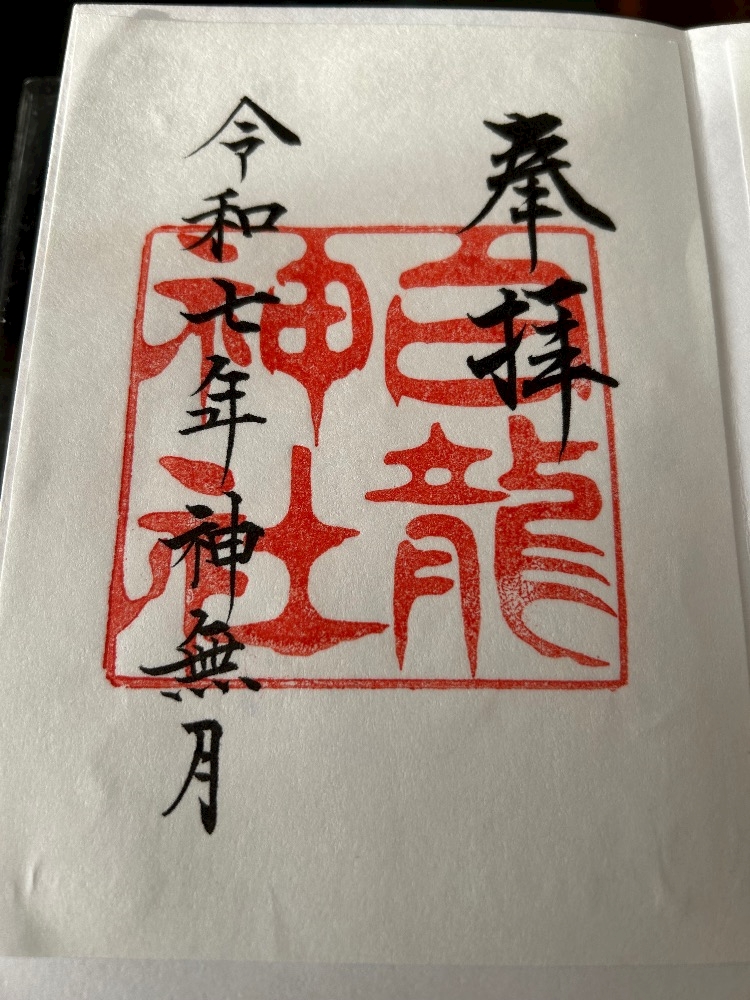 奉拝
白龍神社
令和七年神無月